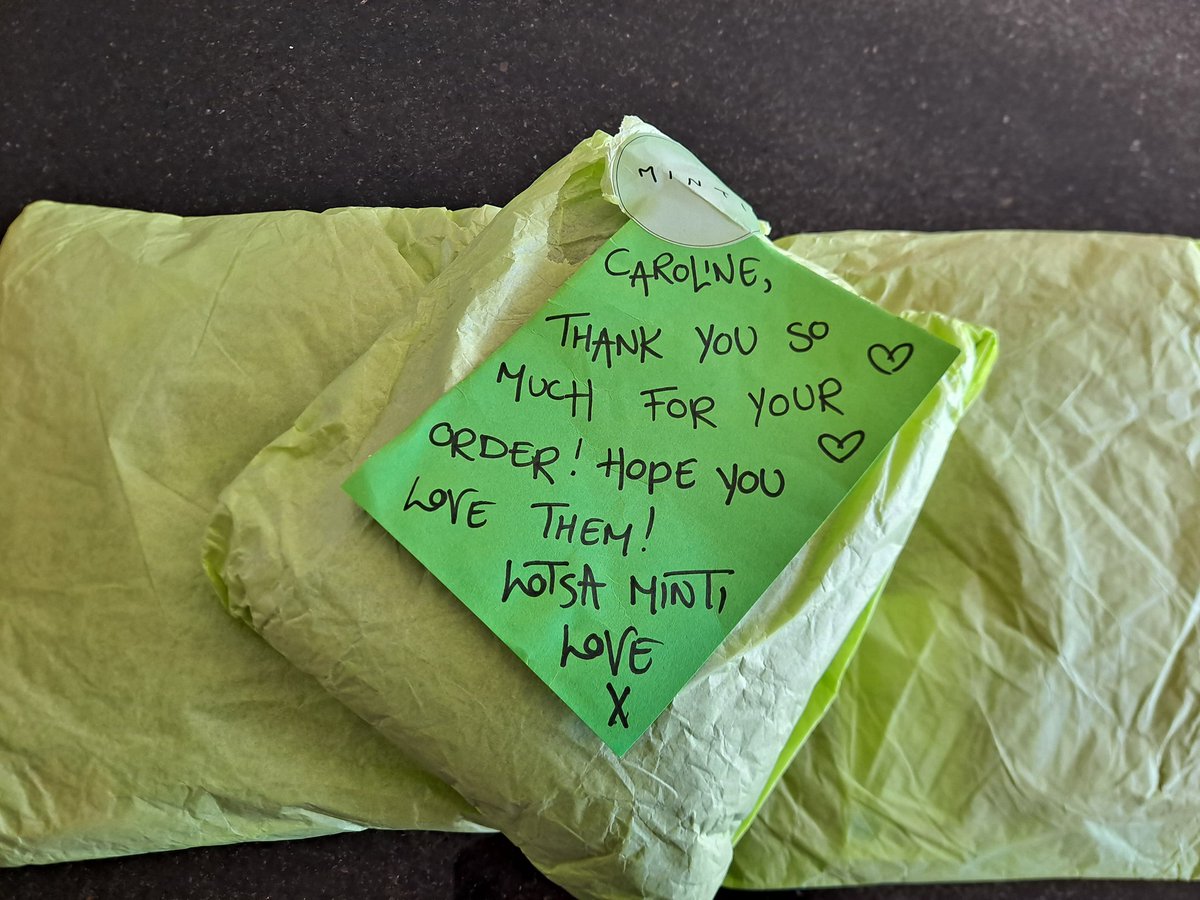 MINT
CAROLINE,
THANK YOU SO
MUCH FOR YOUR
ORDER! HOPE YOU
LOVE THEM!
LOTSA MINTI
LOVE
X